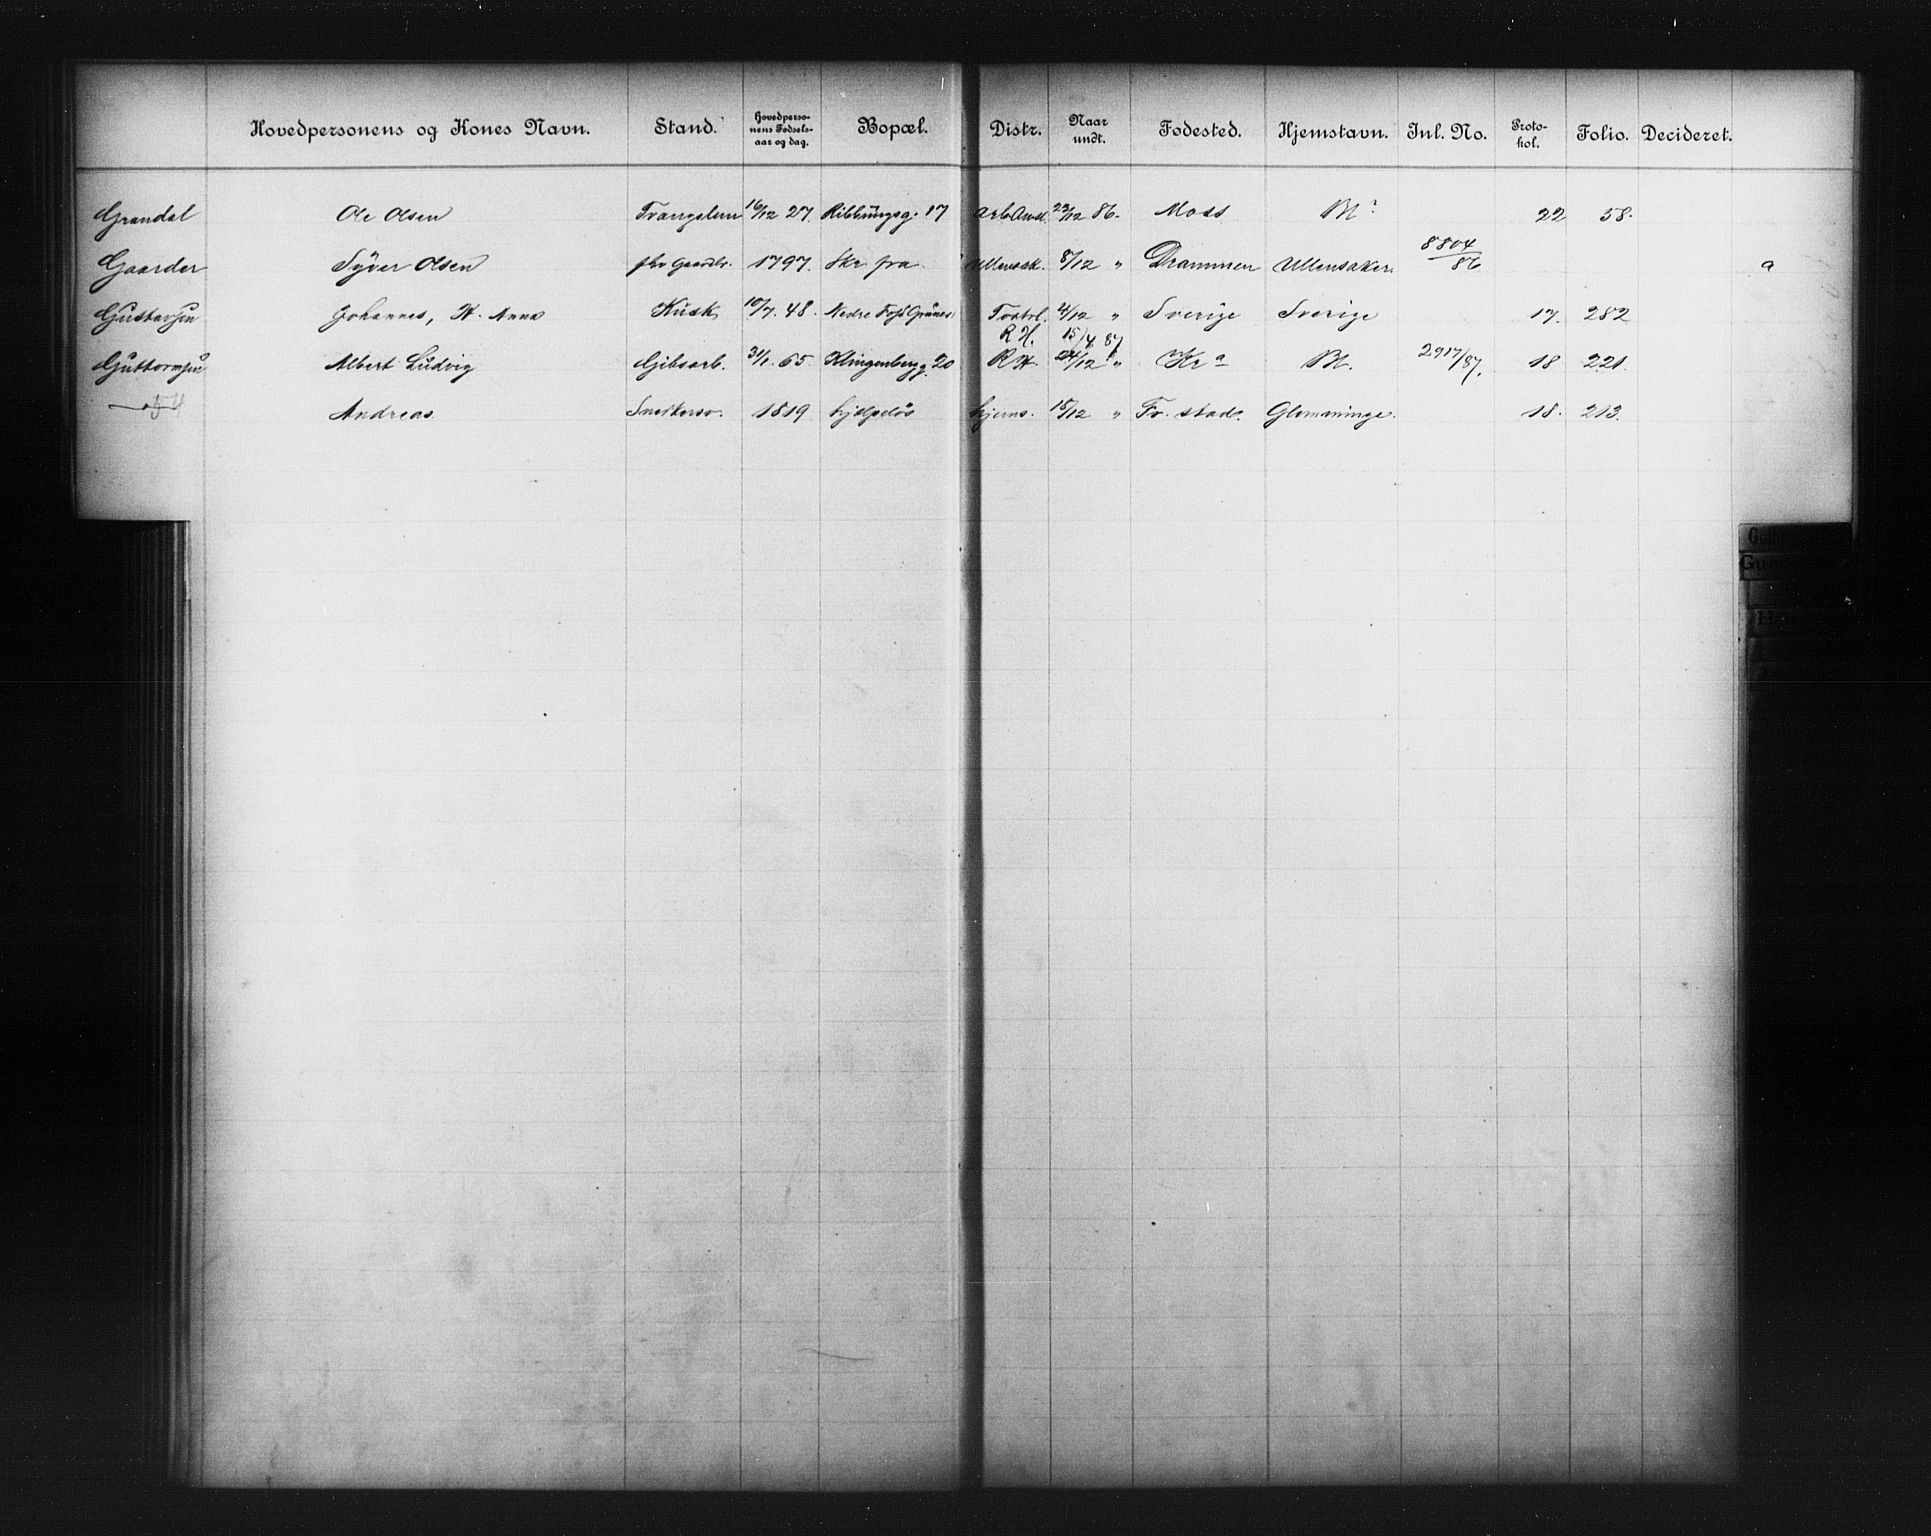 Hovedpersonens og Kones Navn. Stand. Hovedperso-nens Fødsels-aar og dag. Bopæl. Distr. Naar undt. Fødested. Hjemstavn. Inl. No. Proto-kol. Folio. Decideret.
Grandal Ole Olsen Tvangslem 16/12 27. Ribbungsg. 17 22/12 86. Moss 22 58.
Gaarder Syver Olsen fhv Gaardbr. 1797. Skr. fra Ullensak. 8/12 " Drammen Ullensaker. 8804/86 a
Gustavsen Johannes, H. Anna Kusk 10/7. 48. Nedre 21/12 " Sverige Sverige 17. 282
R H. 15/4 87
Guttormsen Albert Ludvig Gibsarb. 31/1. 65. Klingenbergg. 20 R H. 24/12 " Kr a 2917/87. 18 221.
Andreas. Snedkersv. 1819 hjælpeløs hjems. 15/12 " Fr. stad. Glemminge. 18. 213.